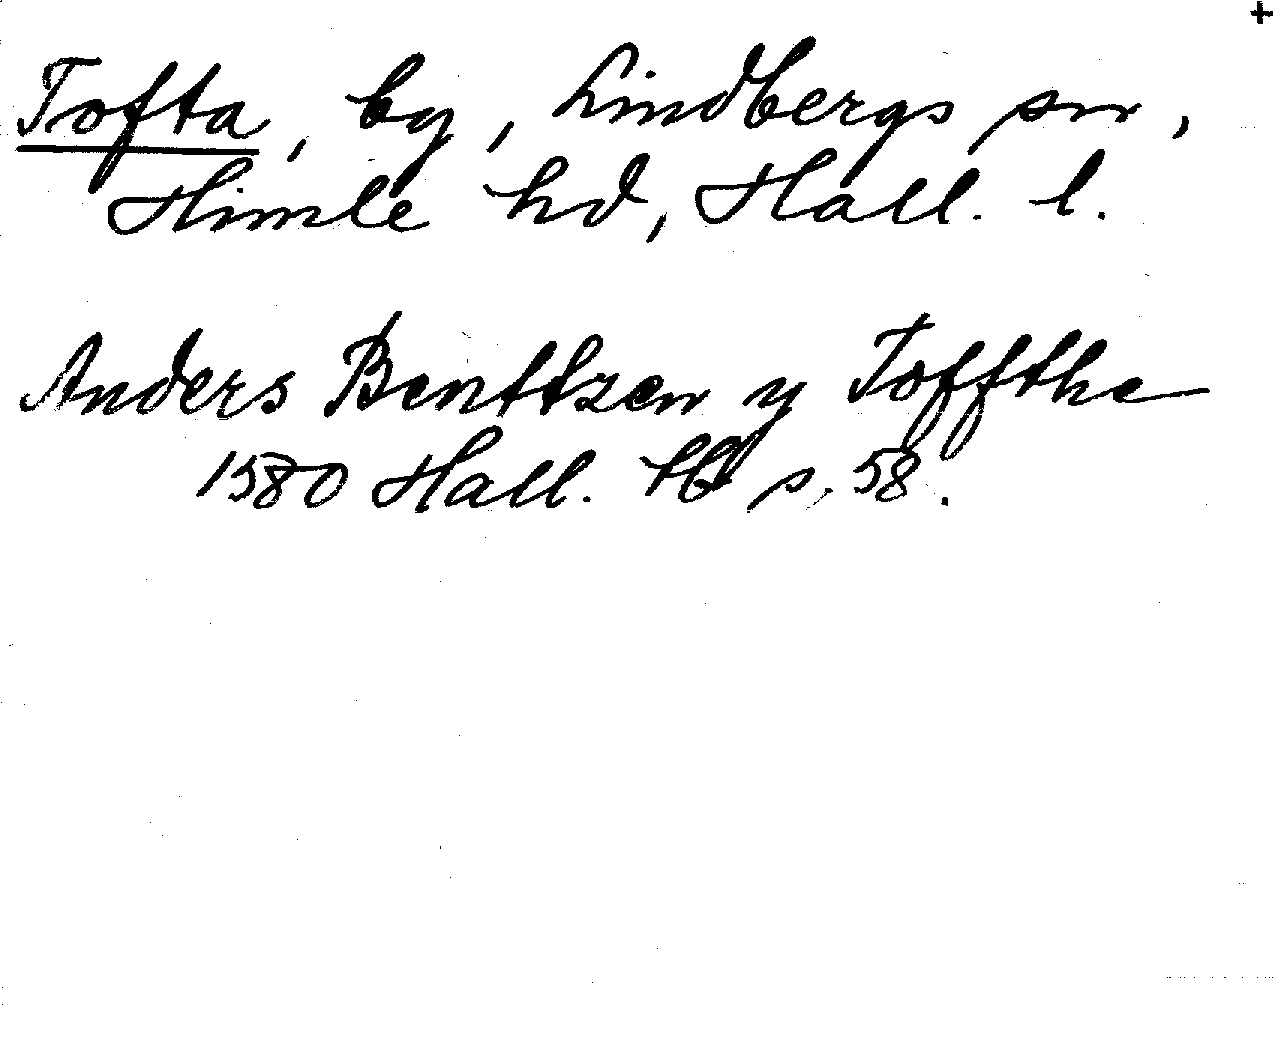 +
Tofta, by, Lindbergs sn,
Himle hd, Hall. l.
Anders Benttzen y Toffthe
1580 Hall. s. 58.